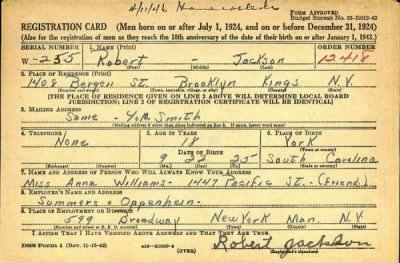 4/11/46
FORM APPROVED
Budget Bureau No. 33-R012-42
REGISTRATION CARD (Men born on or after July 1, 1924, and on or before December 31, 1924)
(Also for the registration of men as they reach the 18th anniversary of the date of their birth on or after January 1, 1943.)
SERIAL NUMBER 1. NAME (Print) ORDER NUMBER
W-255 Robert - Jackson 12418
(First) (Middle) (Last)
2. PLACE OF RESIDENCE (Print)
1408 Bergen St. Brooklyn Kings N.Y.
[THE PLACE OF RESIDENCE GIVEN ON LINE 2 ABOVE WILL DETERMINE LOCAL BOARD
JURISDICTION; LINE 2 OF REGISTRATION CERTIFICATE WILL BE IDENTICAL]
3. MAILING ADDRESS
Same - Y.M. Smith
[Mailing address if other than place indicated on line 2. If same, insert word same]
4. TELEPHONE 5. AGE IN YEARS 6. PLACE OF BIRTH
None 18 York
DATE OF BIRTH
9 22 25 South Carolina
(Exchange) (Number) (Mo.) (Day) (Yr.) (State or country)
7. NAME AND ADDRESS OF PERSON WHO WILL ALWAYS KNOW YOUR ADDRESS
Miss Anna Williams - 1447 Pacific St. - (Friend)
8. EMPLOYER'S NAME AND ADDRESS
Summers & Oppenhein.
9. PLACE OF EMPLOYMENT OR BUSINESS
599 Broadway New York Man. N.Y.
(Number and street or R. F. D. number) (Town) (County) (State)
I AFFIRM THAT I HAVE VERIFIED ABOVE ANSWERS AND THAT THEY ARE TRUE.
DSS Form 1 (Rev. 11-16-42) (OVER) Robert Jackson
(Registrant's signature)